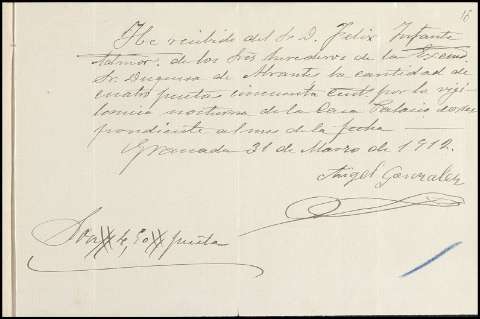 16
He recibido del Sr. D. Felix Infante
Admor. de los Sres herederos de la Excma.
Sr. Duquesa de Abrantes la cantidad de
cuatro pesetas cincuenta cents por la vigi
lancia nocturna de la Casa Palacio corres
pondiente al mes de la fecha
Granada 31 de Marzo de 1912.
Angel Gonzalez
Son 4,50 pesetas